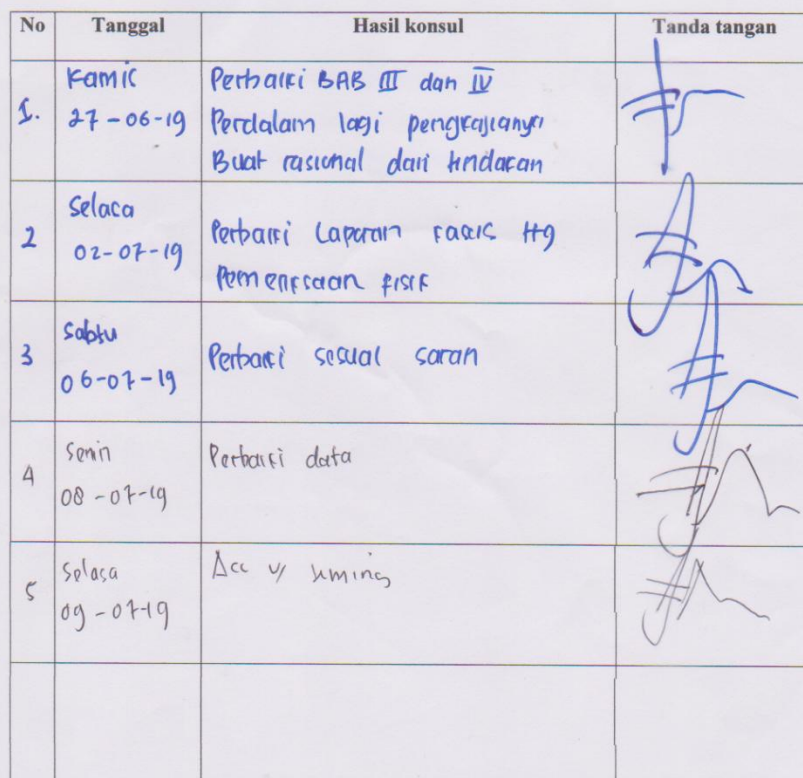 No Tanggal Hasil konsul Tanda tangan
1. Kamis Perbaiki BAB III dan IV
27-06-19 Perdalam lagi pengkajianya
Buat rasional dari tindakan
2 Selasa
02-07-19 Perbaiki Laporan kasus
Pemeriksaan fisik
3 Sabtu
06-07-19 Perbaiki sesuai saran
4 Senin Perbaiki data
08-07-19
5 Selasa Acc
09-07-19